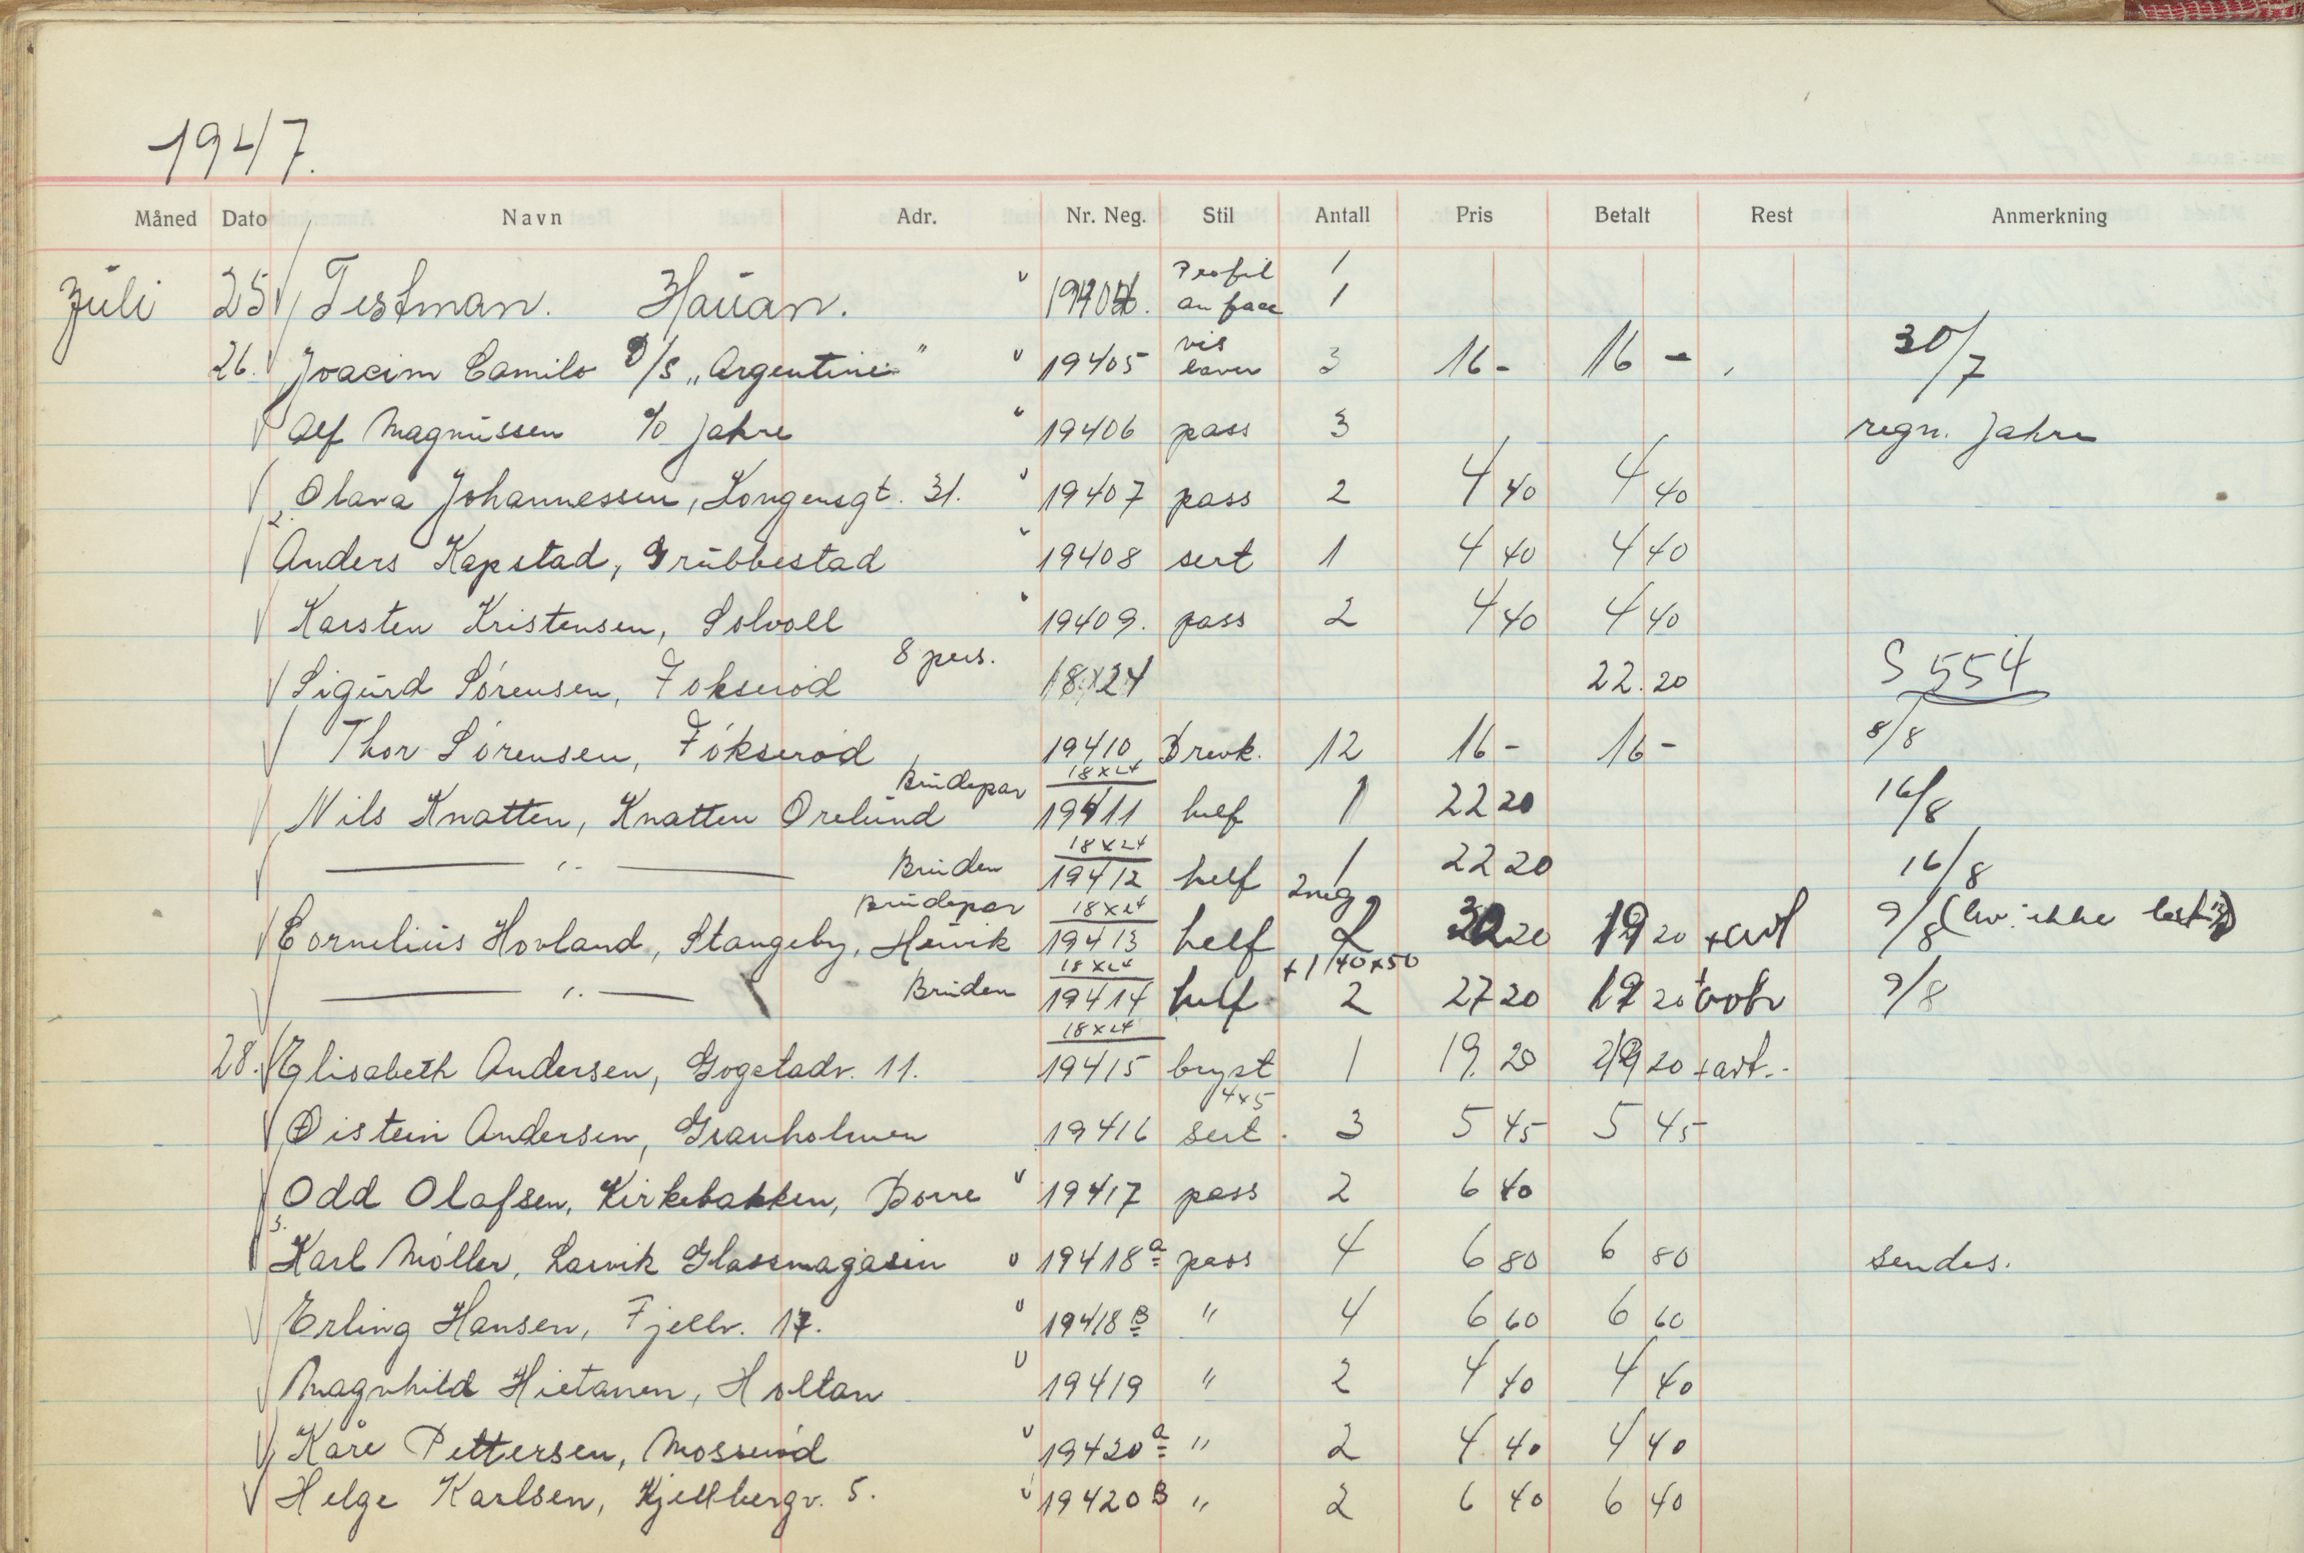 1947.
Måned Dato Navn Adr. Nr. Neg. Stil Antall Pris Betalt Rest Anmerkning
Profil 1
Juli 25 Testman. Hauan. 19404. an face 1
vis
26. Joacim Camilo D/S „Argentine" 19405 3 16 - 16 - 30/7
Alf Magnussen c/o Jahre 19406 pass 3 regn. Jahre
Olava Johannessen, Kongensgt. 31. 19407 pass 2 4 40 4 40
Anders Kapstad, Grübbestad 19408 sert 1 4 40 4 40
Karsten Kristensen, Solvoll 19409. pass 2 4 40 4 40
8 pers.
Sigurd Sørensen, Fokserød 18x24 22.20 S 554
Thor Sørensen, Fokserød 19410 Brevk. 12 16 - 16 - 8/8
Brudepar 18x24
Nils Knatten, Knatten Orelund 19411 helf 1 22 20 16/8
18x24
— " — Bruden 19412 helf 1 22 20 16/8
Brudepar 18x24 2 neg
Cornelius Hovland, Stangeby, 19413 helf 2 20 19 20 9/8
18x24 +1 40x50
— " — Bruden 19414 helf 2 27 20 20 9/8
18x24
28. Elisabeth Andersen, Gogstadv. 11. 19415 bryst 1 19. 20 20
4x5
Øistein Andersen, Granholmen 19416 sert. 3 5 45 5 45
Odd Olafsen, Kirkebakken, Borre 19417 pass 2 6 40
Karl Møller, Larvik Glassmagasin 19418a pass 4 6 80 6 80 sendes.
Erling Hansen, Fjellv. 17. 19418B " 4 6 60 6 60
Magnhild Hietanen, Holtan 19419 " 2 4 40 4 40
Kåre Pettersen, Mosserød 19420a " 2 4 40 4 40
Helge Karlsen, Kjellbergv. 5. 19420B " 2 6 40 6 40